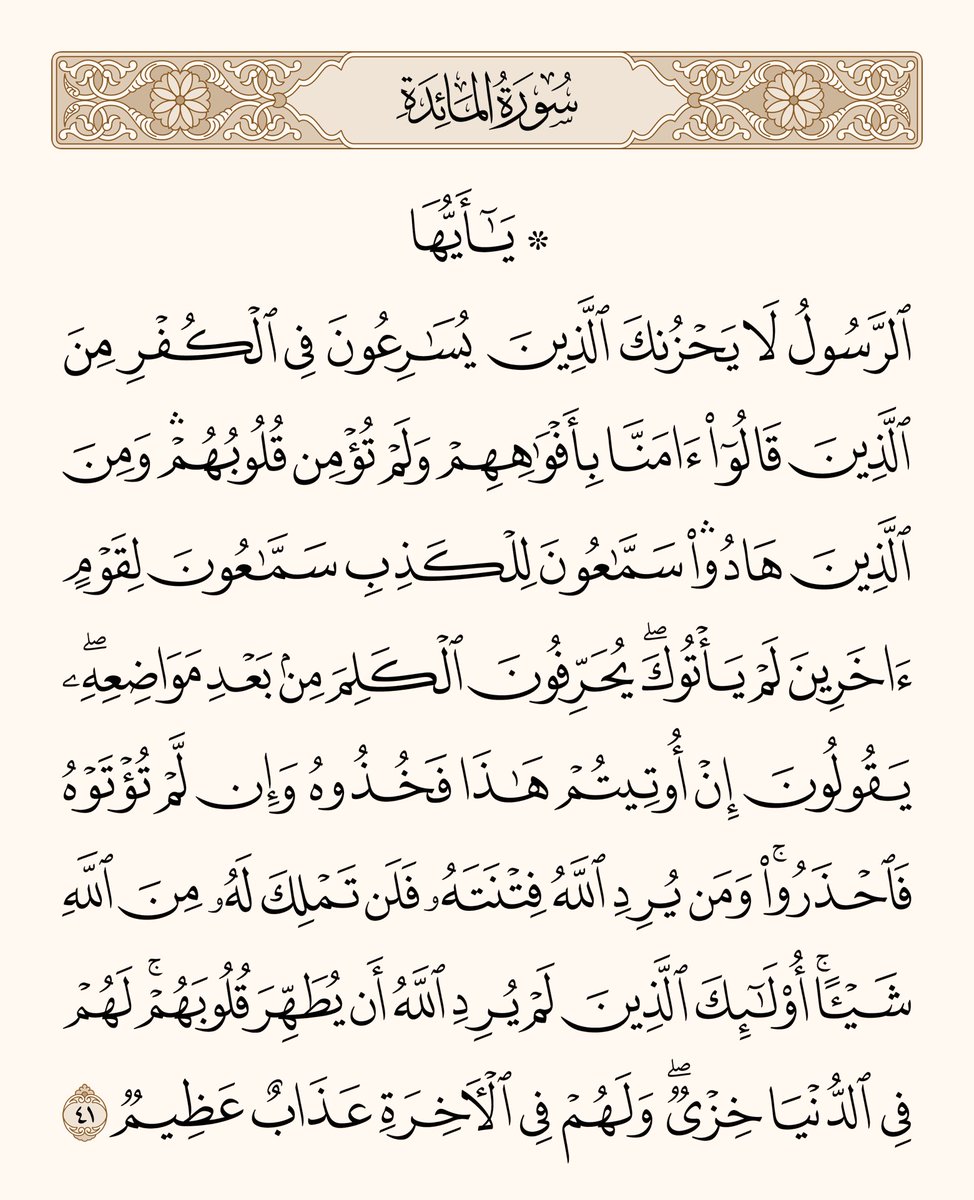 سُورَةُ المَائِدَةِ
* يَـٰٓأَيُّهَا
ٱلرَّسُولُ لَا يَحۡزُنكَ ٱلَّذِينَ يُسَـٰرِعُونَ فِي ٱلۡكُفۡرِ مِنَ
ٱلَّذِينَ قَالُوٓاْ ءَامَنَّا بِأَفۡوَٰهِهِمۡ وَلَمۡ تُؤۡمِن قُلُوبُهُمۡۛ وَمِنَ
ٱلَّذِينَ هَادُواْۛ سَمَّـٰعُونَ لِلۡكَذِبِ سَمَّـٰعُونَ لِقَوۡمٍ
ءَاخَرِينَ لَمۡ يَأۡتُوكَۖ يُحَرِّفُونَ ٱلۡكَلِمَ مِنۢ بَعۡدِ مَوَاضِعِهِۦۖ
يَقُولُونَ إِنۡ أُوتِيتُمۡ هَـٰذَا فَخُذُوهُ وَإِن لَّمۡ تُؤۡتَوۡهُ
فَٱحۡذَرُواْۚ وَمَن يُرِدِ ٱللَّهُ فِتۡنَتَهُۥ فَلَن تَمۡلِكَ لَهُۥ مِنَ ٱللَّهِ
شَيۡـًٔاۚ أُوْلَـٰٓئِكَ ٱلَّذِينَ لَمۡ يُرِدِ ٱللَّهُ أَن يُطَهِّرَ قُلُوبَهُمۡۚ لَهُمۡ
فِي ٱلدُّنۡيَا خِزۡيٞۖ وَلَهُمۡ فِي ٱلۡأٓخِرَةِ عَذَابٌ عَظِيمٞ ٤١